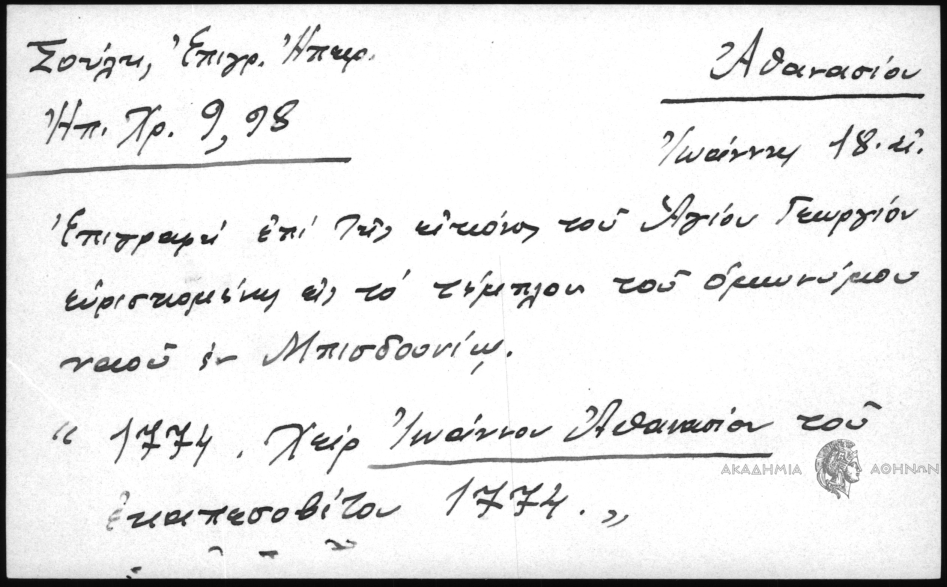 Σούλη, Ἐπιγρ. Ἠπειρ.
Ἠπ. Χρ. 9, 98
Ἀθανασίου
Ἰωάννης 18. αἰ.
Ἐπιγραφὴ ἐπὶ τῆς εἰκόνος τοῦ Ἁγίου Γεωργίου
εὑρισκομένης εἰς τὸ τέμπλον τοῦ ὁμωνύμου
ναοῦ ἐν Μπισδουνίῳ.
“ 1774. Χεὶρ Ἰωάννου Ἀθανασίου τοῦ
ἐκ καπεσοβίτου 1774. „
ΑΚΑΔΗΜΙΑ ΑΘΗΝΩΝ